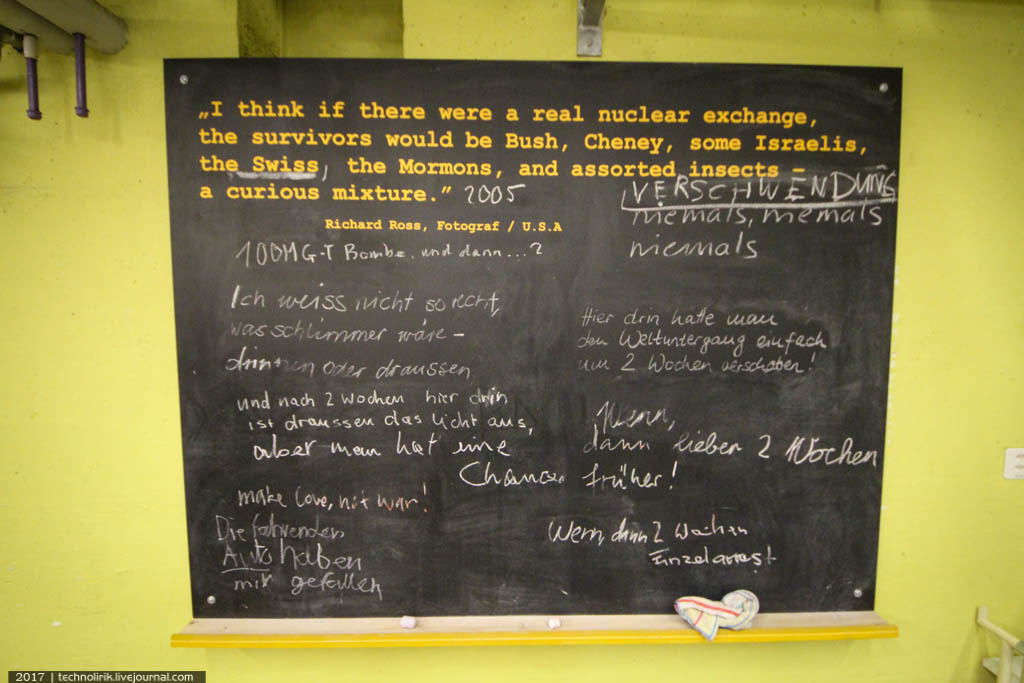 „I think if there were a real nuclear exchange,
the survivors would be Bush, Cheney, some Israelis,
the Swiss, the Mormons, and assorted insects –
a curious mixture.” 2005
Richard Ross, Fotograf / U.S.A
VERSCHWENDUNG
niemals, niemals
niemals
100MG-T Bombe, und dann...?
Ich weiss nicht so recht,
was schlimmer wäre –
drinnen oder draussen
und nach 2 Wochen hier drin
ist draussen das Licht aus,
aber man hat eine
Chance
make love, not war!
Die fahrenden
Auto haben
mir gefallen
Hier drin hätte man
den Weltuntergang einfach
um 2 Wochen verschoben!
Wenn,
dann lieber 2 Wochen
früher!
Wenn, dann 2 Wochen
Einzelarrest
2017 | technolirik.livejournal.com